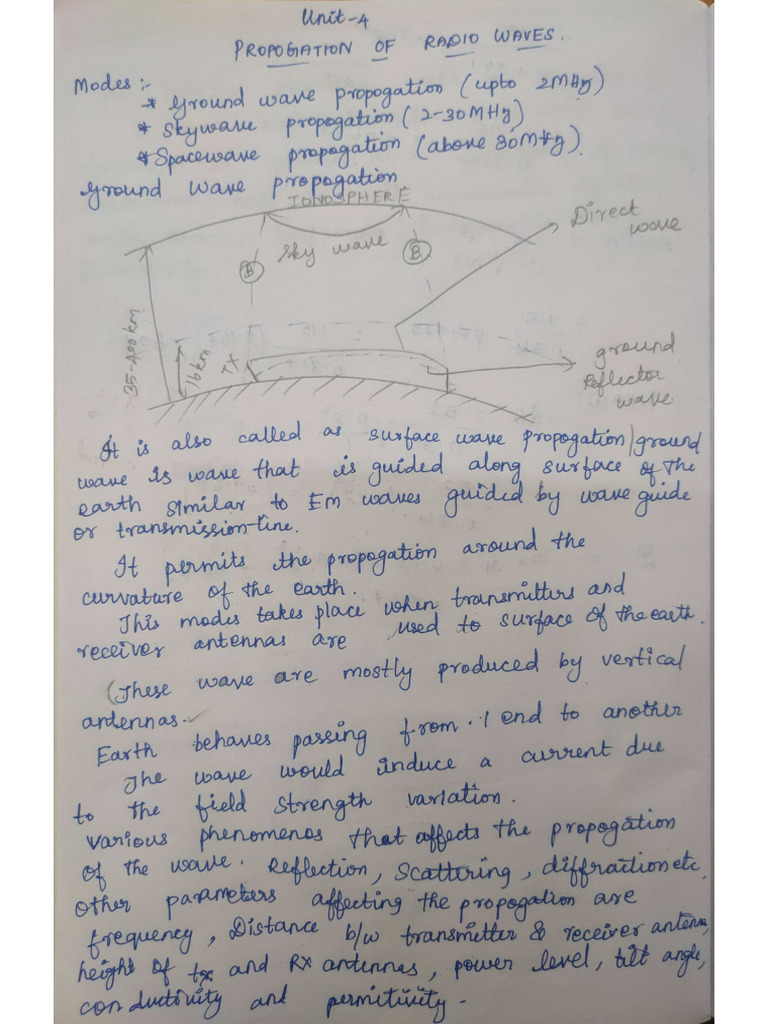 Unit-4
PROPOGATION OF RADIO WAVES.
Modes :-
* Ground wave propogation (upto 2MHz)
* Skywave propogation (2-30MHz)
* Spacewave propogation (above 30MHz)
Ground wave propogation
IONOSPHERE
Direct wave
Sky wave
B
B
35-400km
16km
TX
ground
Reflector
wave
It is also called as surface wave propogation/ground
wave is wave that is guided along surface of the
earth similar to Em waves guided by wave guide
or transmission-line.
It permits the propogation around the
curvature of the earth.
This modes takes place when transmitters and
receiver antennas are used to surface of the earth.
(These wave are mostly produced by vertical
antennas.
Earth behaves passing from 1 end to another
The wave would induce a current due
to the field strength variation.
Various phenomenos that affects the propogation
of the wave. Reflection, Scattering, diffraction etc
other parameters affecting the propogation are
frequency, Distance b/w transmitter & receiver antenna,
height of tx and Rx antennas, power level, tilt angle,
conductivity and permitivity.